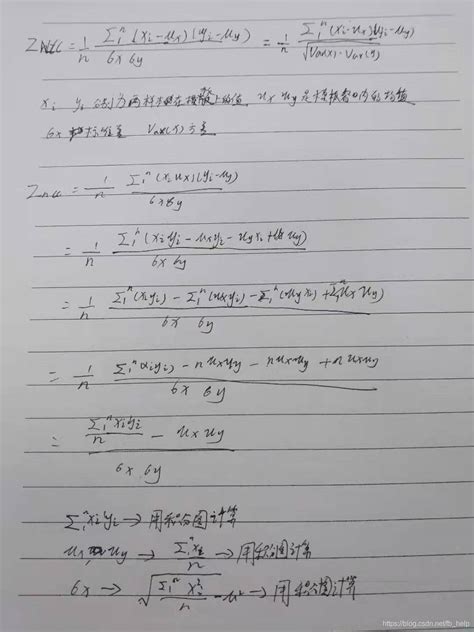 ZNCC = 1/n Σ₁ⁿ(xᵢ-uₓ)(yᵢ-u_y) / 6x 6y = 1/n Σ₁ⁿ(xᵢ-uₓ)(yᵢ-u_y) / √Var(x)·Var(y)
xᵢ yᵢ 分别为两样本在模板上的值 uₓ u_y 是模板窗口内的均值
6x 标准差 Var(x) 方差
Zncc = 1/n Σ₁ⁿ(xᵢ uₓ)(yᵢ-u_y) / 6x6y
= 1/n Σ₁ⁿ(xᵢyᵢ - uₓyᵢ - u_yxᵢ + uₓu_y) / 6x 6y
= 1/n Σ₁ⁿ(xᵢyᵢ) - Σ₁ⁿ(uₓyᵢ) - Σ₁ⁿ(u_yxᵢ) + Σ₁ⁿuₓu_y) / 6x 6y
= 1/n Σ₁ⁿxᵢyᵢ) - nuₓu_y - nuₓu_y + nuₓu_y / 6x 6y
= Σ₁ⁿxᵢyᵢ/n - uₓu_y / 6x 6y
Σ₁ⁿxᵢyᵢ → 用积分图计算
uₓ u_y → Σ₁ⁿxᵢ/n → 用积分图计算
6x → √Σ₁ⁿxᵢ²/n - u² → 用积分图计算
https://blog.csdn.net/fb_help